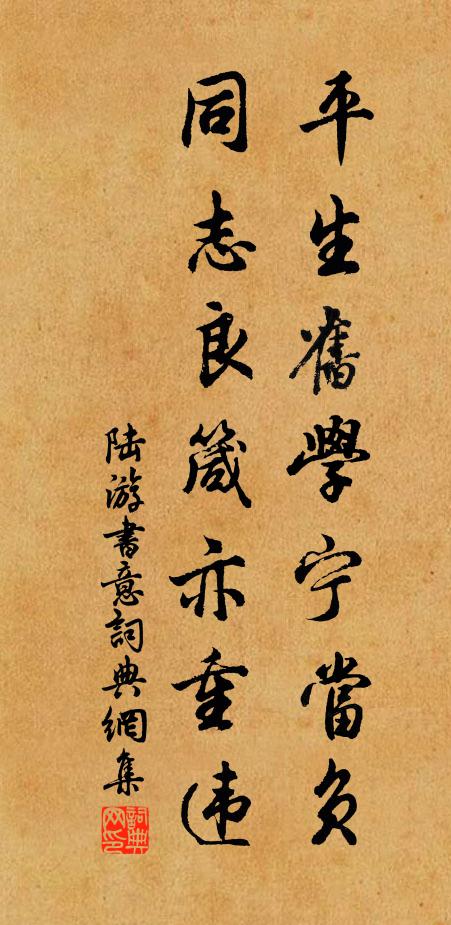 平生舊學宁當負
同志良箴亦重违
陆游書意詞典網集
詞典网印